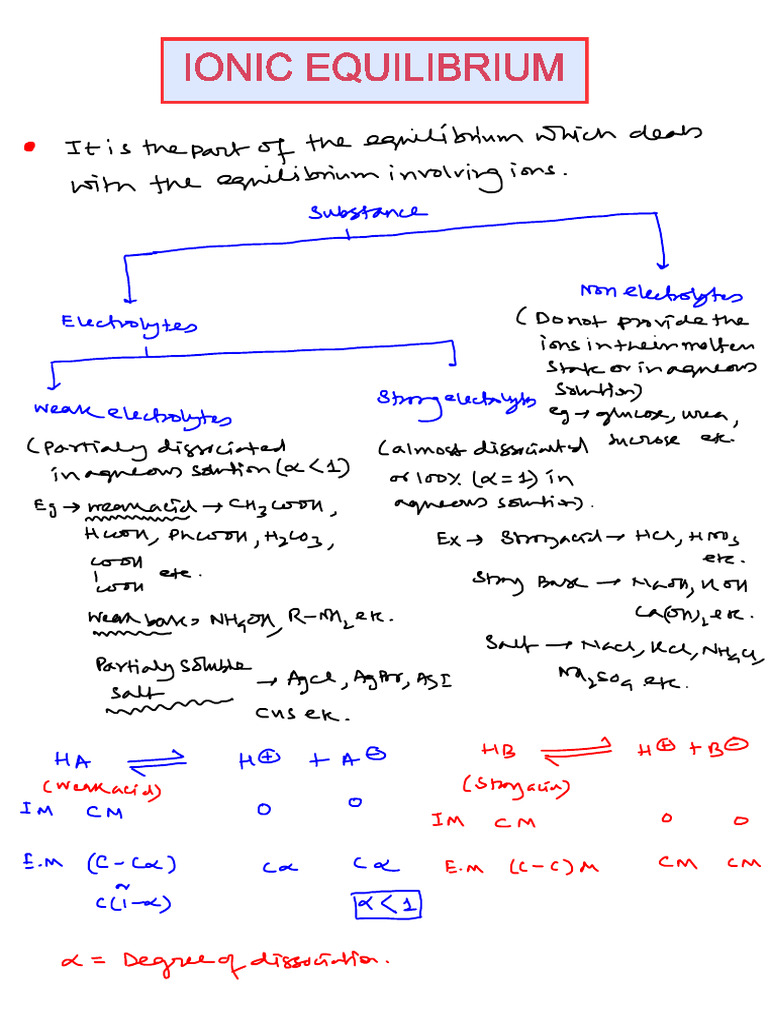 IONIC EQUILIBRIUM
• It is the part of the equilibrium which deals
with the equilibrium involving ions.
Substance
Electrolytes
Non electrolytes
(Do not provide the
ions in their molten
state or in aqueous
solution)
eg → glucose, urea,
sucrose etc.
Weak electrolytes
(Partialy dissociated
in aqueous solution (α < 1)
Eg → weak acid → CH3COOH,
HCOOH, PhCOOH, H2CO3,
COOH
COOH etc.
Weak base = NH4OH, R-NH2 etc.
Partialy Soluble
Salt → AgCl, AgBr, AgI
CuS etc.
Strong electrolytes
(almost dissociated
or 100% (α = 1) in
aqueous solution).
Ex → Strong acid → HCl, HNO3
etc.
Strong Base → NaOH, KOH
Ca(OH)2 etc.
Salt → NaCl, KCl, NH4Cl,
Na2SO4 etc.
HA ⇌ H⊕ + A⊖
(Weak acid)
IM CM 0 0
E.M (C - Cα) Cα Cα
~
C(1-α) α < 1
HB ⇌ H⊕ + B⊖
(Strong acid)
IM CM 0 0
E.M (C-C) M CM CM
α = Degree of dissociation.